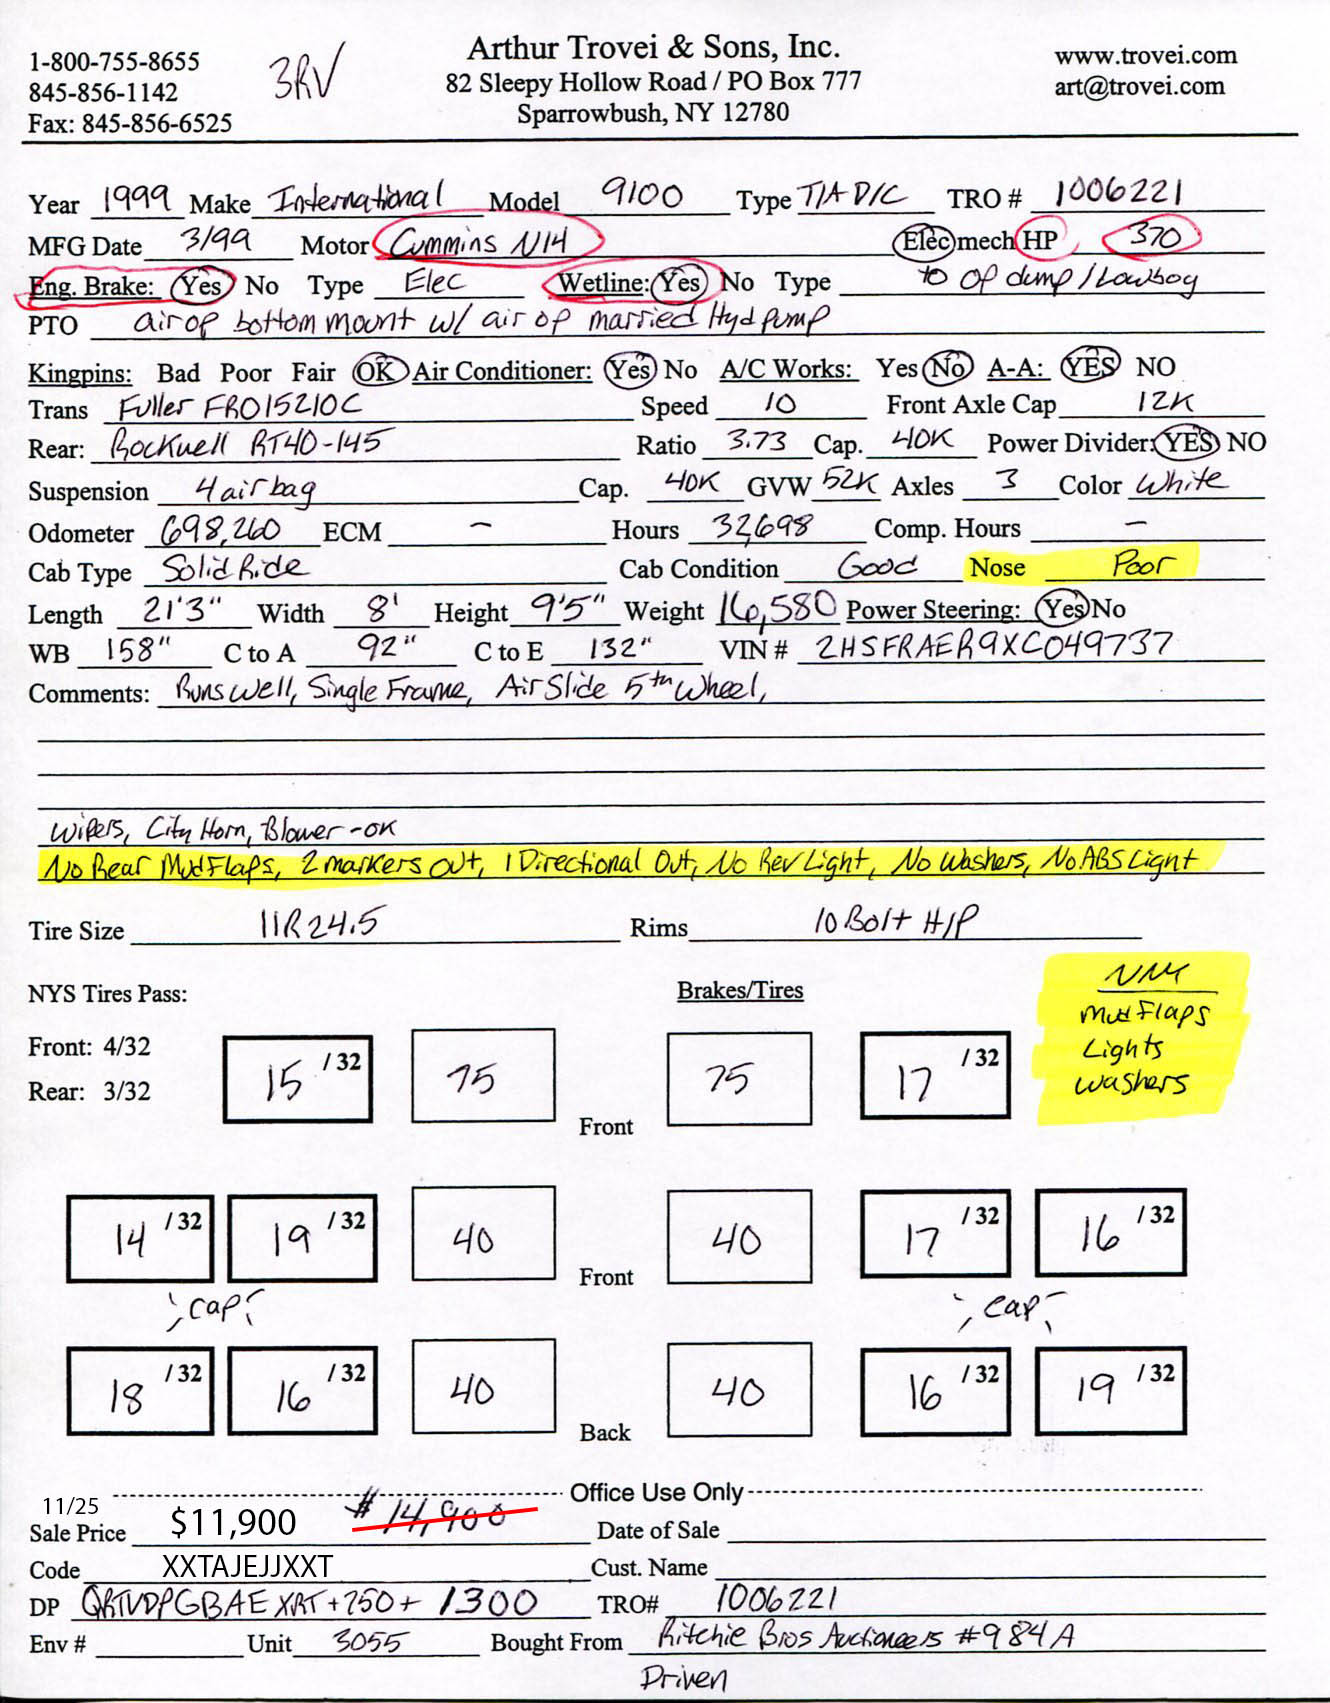 1-800-755-8655
845-856-1142
Fax: 845-856-6525
3RV
Arthur Trovei & Sons, Inc.
82 Sleepy Hollow Road / PO Box 777
Sparrowbush, NY 12780
www.trovei.com
art@trovei.com
Year 1999 Make International Model 9100 Type T/A D/C TRO # 1006221
MFG Date 3/99 Motor Cummins N14 Elec mech HP 370
Eng. Brake: Yes No Type Elec Wetline: Yes No Type to op dump / Lowboy
PTO air op bottom mount w/ air op married Hyd pump
Kingpins: Bad Poor Fair OK Air Conditioner: Yes No A/C Works: Yes No A-A: YES NO
Trans Fuller FRO15210C Speed 10 Front Axle Cap 12K
Rear: Rockwell RT40-145 Ratio 3.73 Cap. 40K Power Divider: YES NO
Suspension 4 air bag Cap. 40K GVW 52K Axles 3 Color White
Odometer 698,260 ECM - Hours 32,698 Comp. Hours -
Cab Type Solid Ride Cab Condition Good Nose Poor
Length 21'3" Width 8' Height 9'5" Weight 16,580 Power Steering: Yes No
WB 158" C to A 92" C to E 132" VIN # 2HSFRAER9XC049737
Comments: Runs Well, Single Frame, Air Slide 5th Wheel,
Wipers, City Horn, Blower - OK
No Rear Mud Flaps, 2 markers out, 1 Directional Out, No Rev Light, No Washers, No ABS Light
Tire Size 11R24.5 Rims 10 Bolt H/P
NYS Tires Pass: Brakes/Tires
Front: 4/32
Rear: 3/32
15 /32 75 Front 75 17 /32
Mud Flaps
Lights
Washers
14 /32 19 /32 40 Front 40 17 /32 16 /32
"cap" "cap"
18 /32 16 /32 40 Back 40 16 /32 19 /32
Office Use Only
11/25
Sale Price $11,900 $14,900 Date of Sale
Code XXTAJEJJXXT Cust. Name
DP QRTVDPGBAEXRT+750+1300 TRO# 1006221
Env # Unit 3055 Bought From Ritchie Bros Auctioneers #984A
Driven